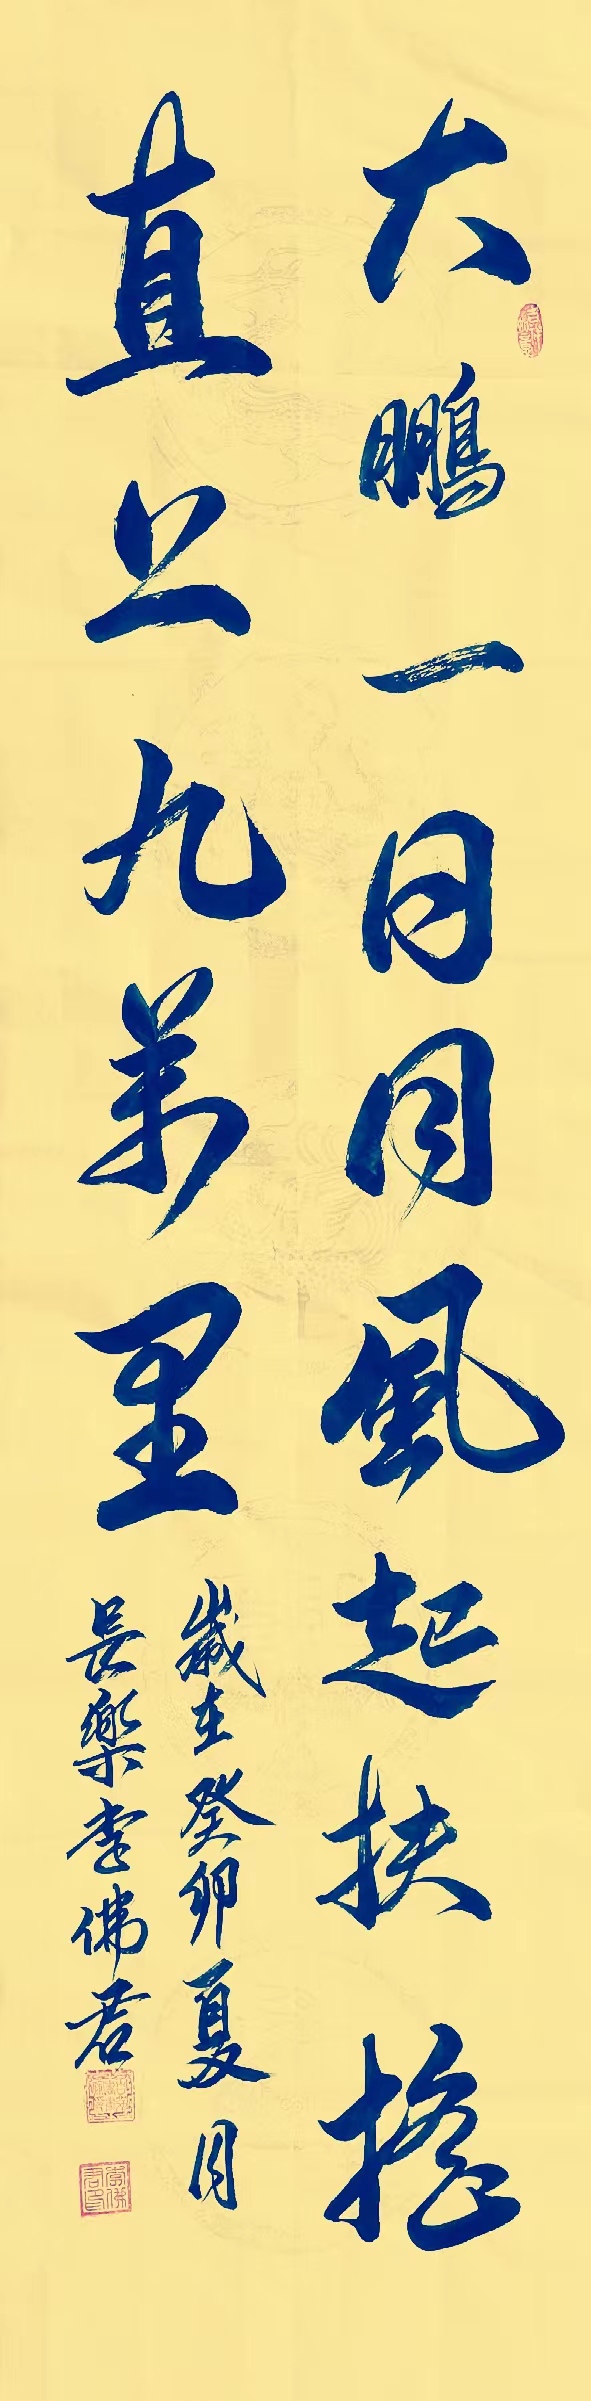 大鵬一日同風起扶搖
直上九萬里
歲在癸卯夏月
長樂李佛君